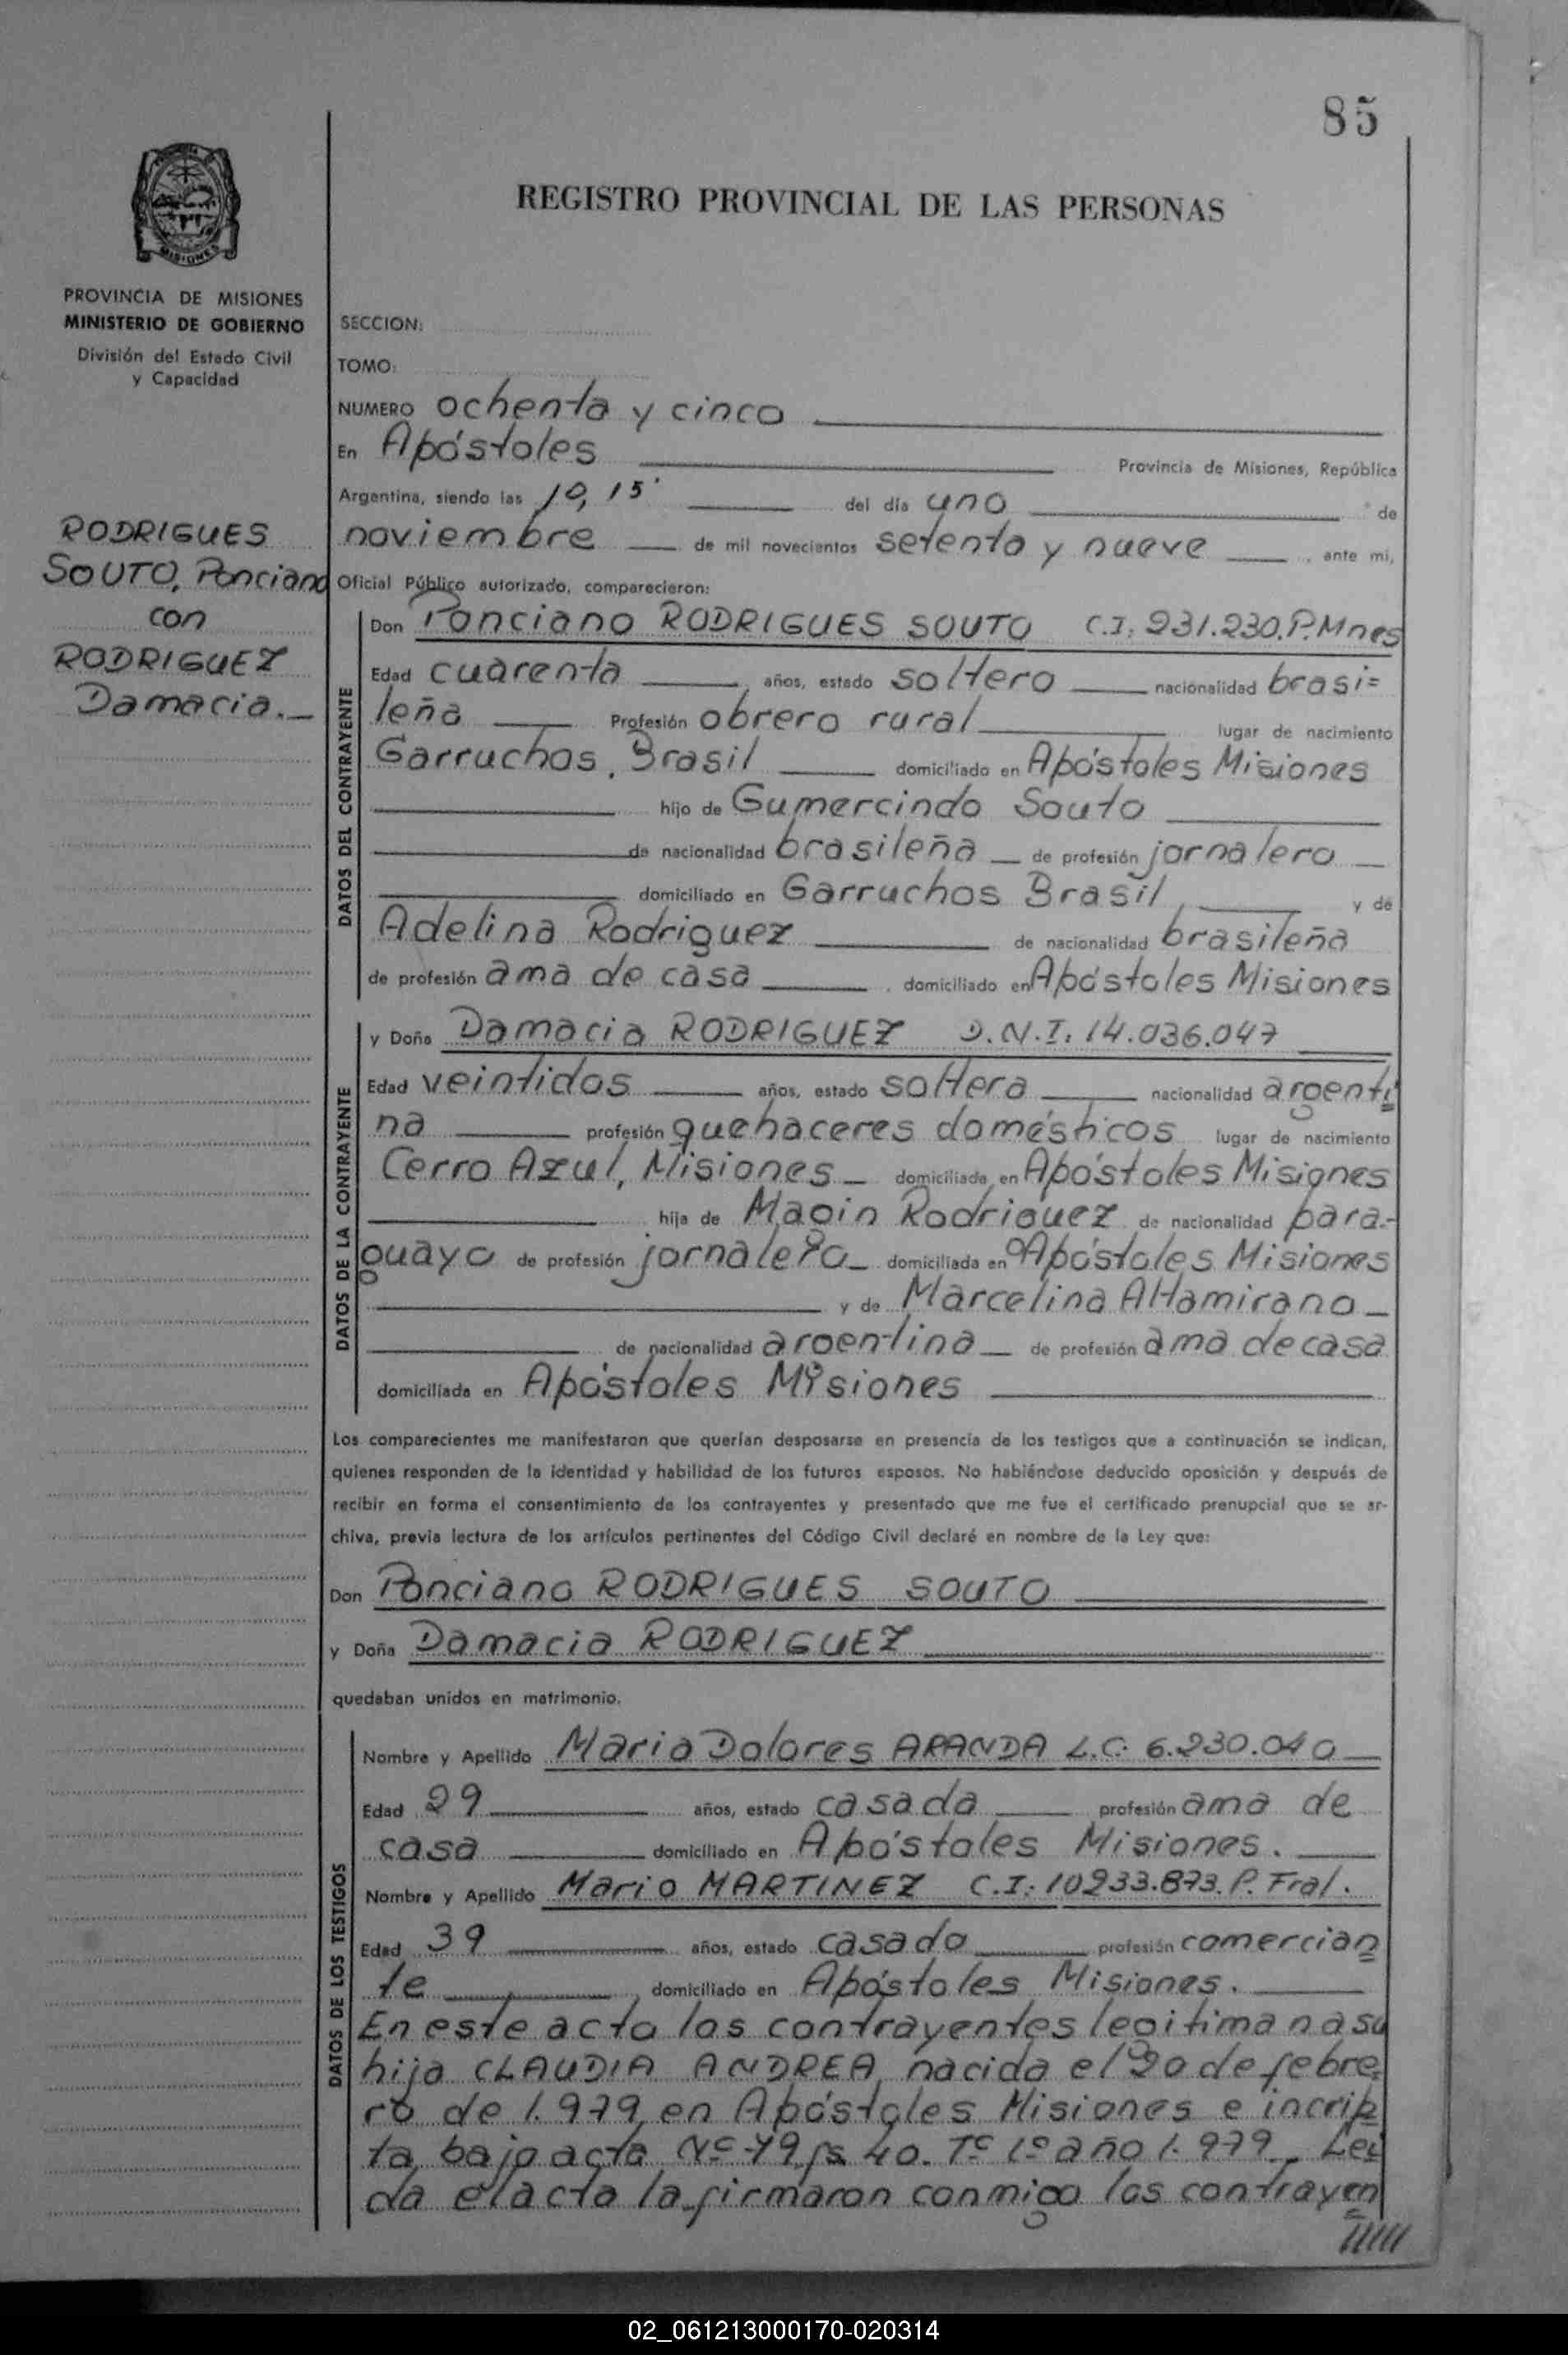 85
REGISTRO PROVINCIAL DE LAS PERSONAS
MISIONES
PROVINCIA DE MISIONES
MINISTERIO DE GOBIERNO
División del Estado Civil
y Capacidad
RODRIGUES
SOUTO, Ponciano
con
RODRIGUEZ
Damacia.—
SECCION:
TOMO:
NUMERO ochenta y cinco
En Apóstoles Provincia de Misiones, República
Argentina, siendo las 10,15' del día uno de
noviembre de mil novecientos setenta y nueve, ante mi,
Oficial Público autorizado, comparecieron:
DATOS DEL CONTRAYENTE
Don Ponciano RODRIGUES SOUTO C.I. 931.230.P.Mnes
Edad cuarenta años, estado soltero nacionalidad brasi=
leña Profesión obrero rural lugar de nacimiento
Garruchos, Brasil domiciliado en Apóstoles Misiones
hijo de Gumercindo Souto
de nacionalidad brasileña de profesión jornalero
domiciliado en Garruchos Brasil, y de
Adelina Rodriguez de nacionalidad brasileña
de profesión ama de casa, domiciliado en Apóstoles Misiones
DATOS DE LA CONTRAYENTE
y Doña Damacia RODRIGUEZ D.N.I. 14.036.047
Edad veintidos años, estado soltera nacionalidad argenti
na profesión quehaceres domésticos lugar de nacimiento
Cerro Azul, Misiones domiciliada en Apóstoles Misiones
hija de Magin Rodriguez de nacionalidad para-
guayo de profesión jornalero domiciliada en Apóstoles Misiones
y de Marcelina Altamirano
de nacionalidad argentina de profesión ama de casa
domiciliada en Apóstoles Misiones
Los comparecientes me manifestaron que querían desposarse en presencia de los testigos que a continuación se indican,
quienes responden de la identidad y habilidad de los futuros esposos. No habiéndose deducido oposición y después de
recibir en forma el consentimiento de los contrayentes y presentado que me fue el certificado prenupcial que se ar-
chiva, previa lectura de los artículos pertinentes del Código Civil declaré en nombre de la Ley que:
Don Ponciano RODRIGUES SOUTO
y Doña Damacia RODRIGUEZ
quedaban unidos en matrimonio.
DATOS DE LOS TESTIGOS
Nombre y Apellido Maria Dolores ARANDA L.C. 6.230.040
Edad 29 años, estado casada profesión ama de
casa domiciliado en Apóstoles Misiones.
Nombre y Apellido Mario MARTINEZ C.I. 10233.873. P. Fral.
Edad 39 años, estado casado profesión comercian
te, domiciliado en Apóstoles Misiones.
En este acto los contrayentes legitiman a su
hija CLAUDIA ANDREA, nacida el 20 de febre
ro de 1.979, en Apóstoles Misiones e incrip
ta, bajo acta Nº 79 fs 40. Tº 1º año 1.979. Leí
da el acta la firmaron conmigo los contrayen
/////
02_061213000170-020314